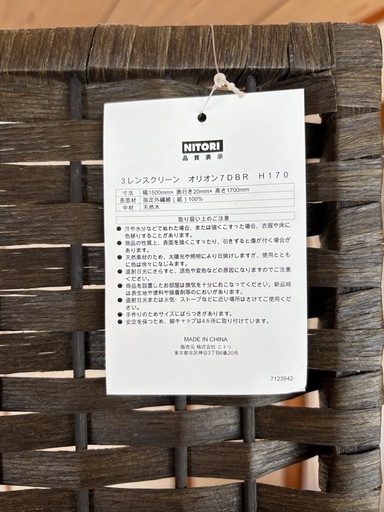 NITORI
品質表示
3レンスクリーン オリオン7DBR H170
寸法 幅1500mm× 奥行き20mm× 高さ1700mm
表面材 指定外繊維(紙)100%
中材 天然木
取り扱い上のご注意
● 汗や水分などでぬれた場合、または強くこすった場合、衣服や床に
色移りすることがあります。
● 商品の性質上、表面を強くこすったり、引きずると傷が付く場合が
あります。
● 天然素材のため、太陽光や照明により日焼けしますが、使用ととも
に色は徐々になじみます。
● 直射日光にさらすと、退色や変色などの原因になりますのでご注意
ください。
● 商品を設置したお部屋は換気を十分におこなってください。新品時
は表生地や塗料や接着剤等のにおいがあります。
● 直射日光または火気・ストーブなどに近い場所はさけてご使用くだ
さい。
● 手作りのためサイズにばらつきがあります。
● 安定を保つため、脚キャップは4ヵ所に取り付けています。
MADE IN CHINA
販売元・株式会社 ニトリ
東京都北区神谷3丁目6番20号
7123542